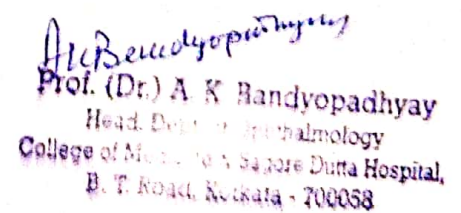 AKBandyopadhyay
Prof. (Dr.) A K Bandyopadhyay
Head. Ophthalmology
College of Sagore Dutta Hospital,
B. T. Road, Kolkata - 700058